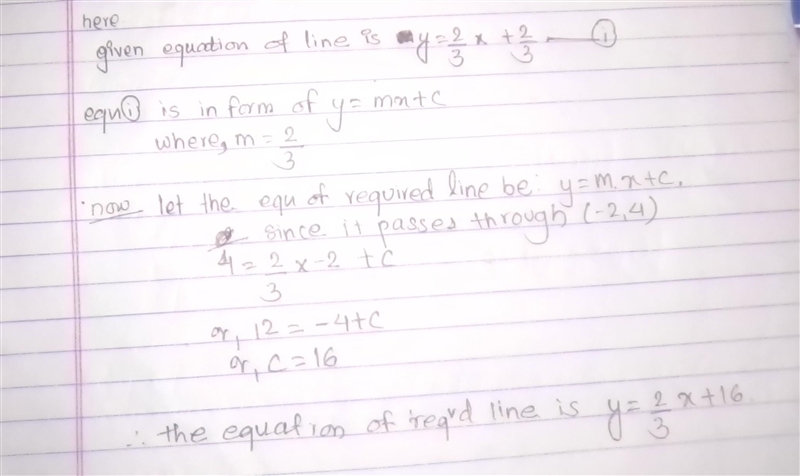 here
given equation of line is y = 2/3 x + 2/3 — (i)
equn (i) is in form of y = mx+c
where, m = 2/3
now let the equ of required line be: y=m.x+c.
since it passes through (-2,4)
4 = 2/3 x -2 + c
or, 12 = -4+c
or, c = 16
∴ the equation of req'd line is y = 2/3 x + 16